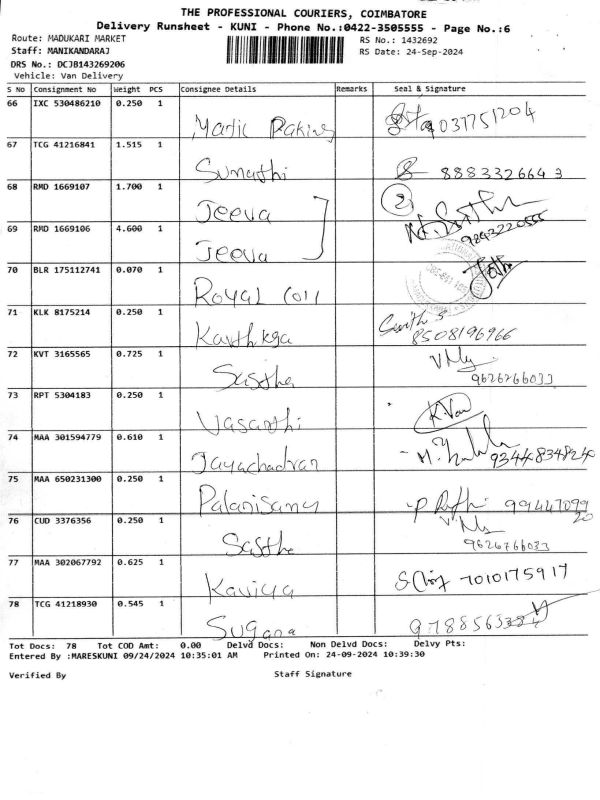 THE PROFESSIONAL COURIERS, COIMBATORE
Delivery Runsheet - KUNI - Phone No.:0422-3505555 - Page No.:6
Route: MADUKARI MARKET RS No.: 1432692
Staff: MANIKANDARAJ RS Date: 24-Sep-2024
DRS No.: DCJB143269206
Vehicle: Van Delivery
S No Consignment No Weight PCS Consignee Details Remarks Seal & Signature
66 IXC 530486210 0.250 1
9037751204
67 TCG 41216841 1.515 1
Sumathi 8883326643
68 RMD 1669107 1.700 1 2
Jeeva
69 RMD 1669106 4.600 1
Jeeva
70 BLR 175112741 0.070 1
Royal Coll
71 KLK 8175214 0.250 1
8508196966
72 KVT 3165565 0.725 1
Sasthe 9626766033
73 RPT 5304183 0.250 1
Vasanthi
74 MAA 301594779 0.610 1
Jayachadran 9344834824
75 MAA 650231300 0.250 1
Palanisamy 9944709920
76 CUD 3376356 0.250 1
Sasthe 9626766033
77 MAA 302067792 0.625 1
Kaviya 7010175917
78 TCG 41218930 0.545 1
Sugana
Tot Docs: 78 Tot COD Amt: 0.00 Delvd Docs: Non Delvd Docs: Delvy Pts:
Entered By :MARESKUNI 09/24/2024 10:35:01 AM Printed On: 24-09-2024 10:39:30
Verified By Staff Signature